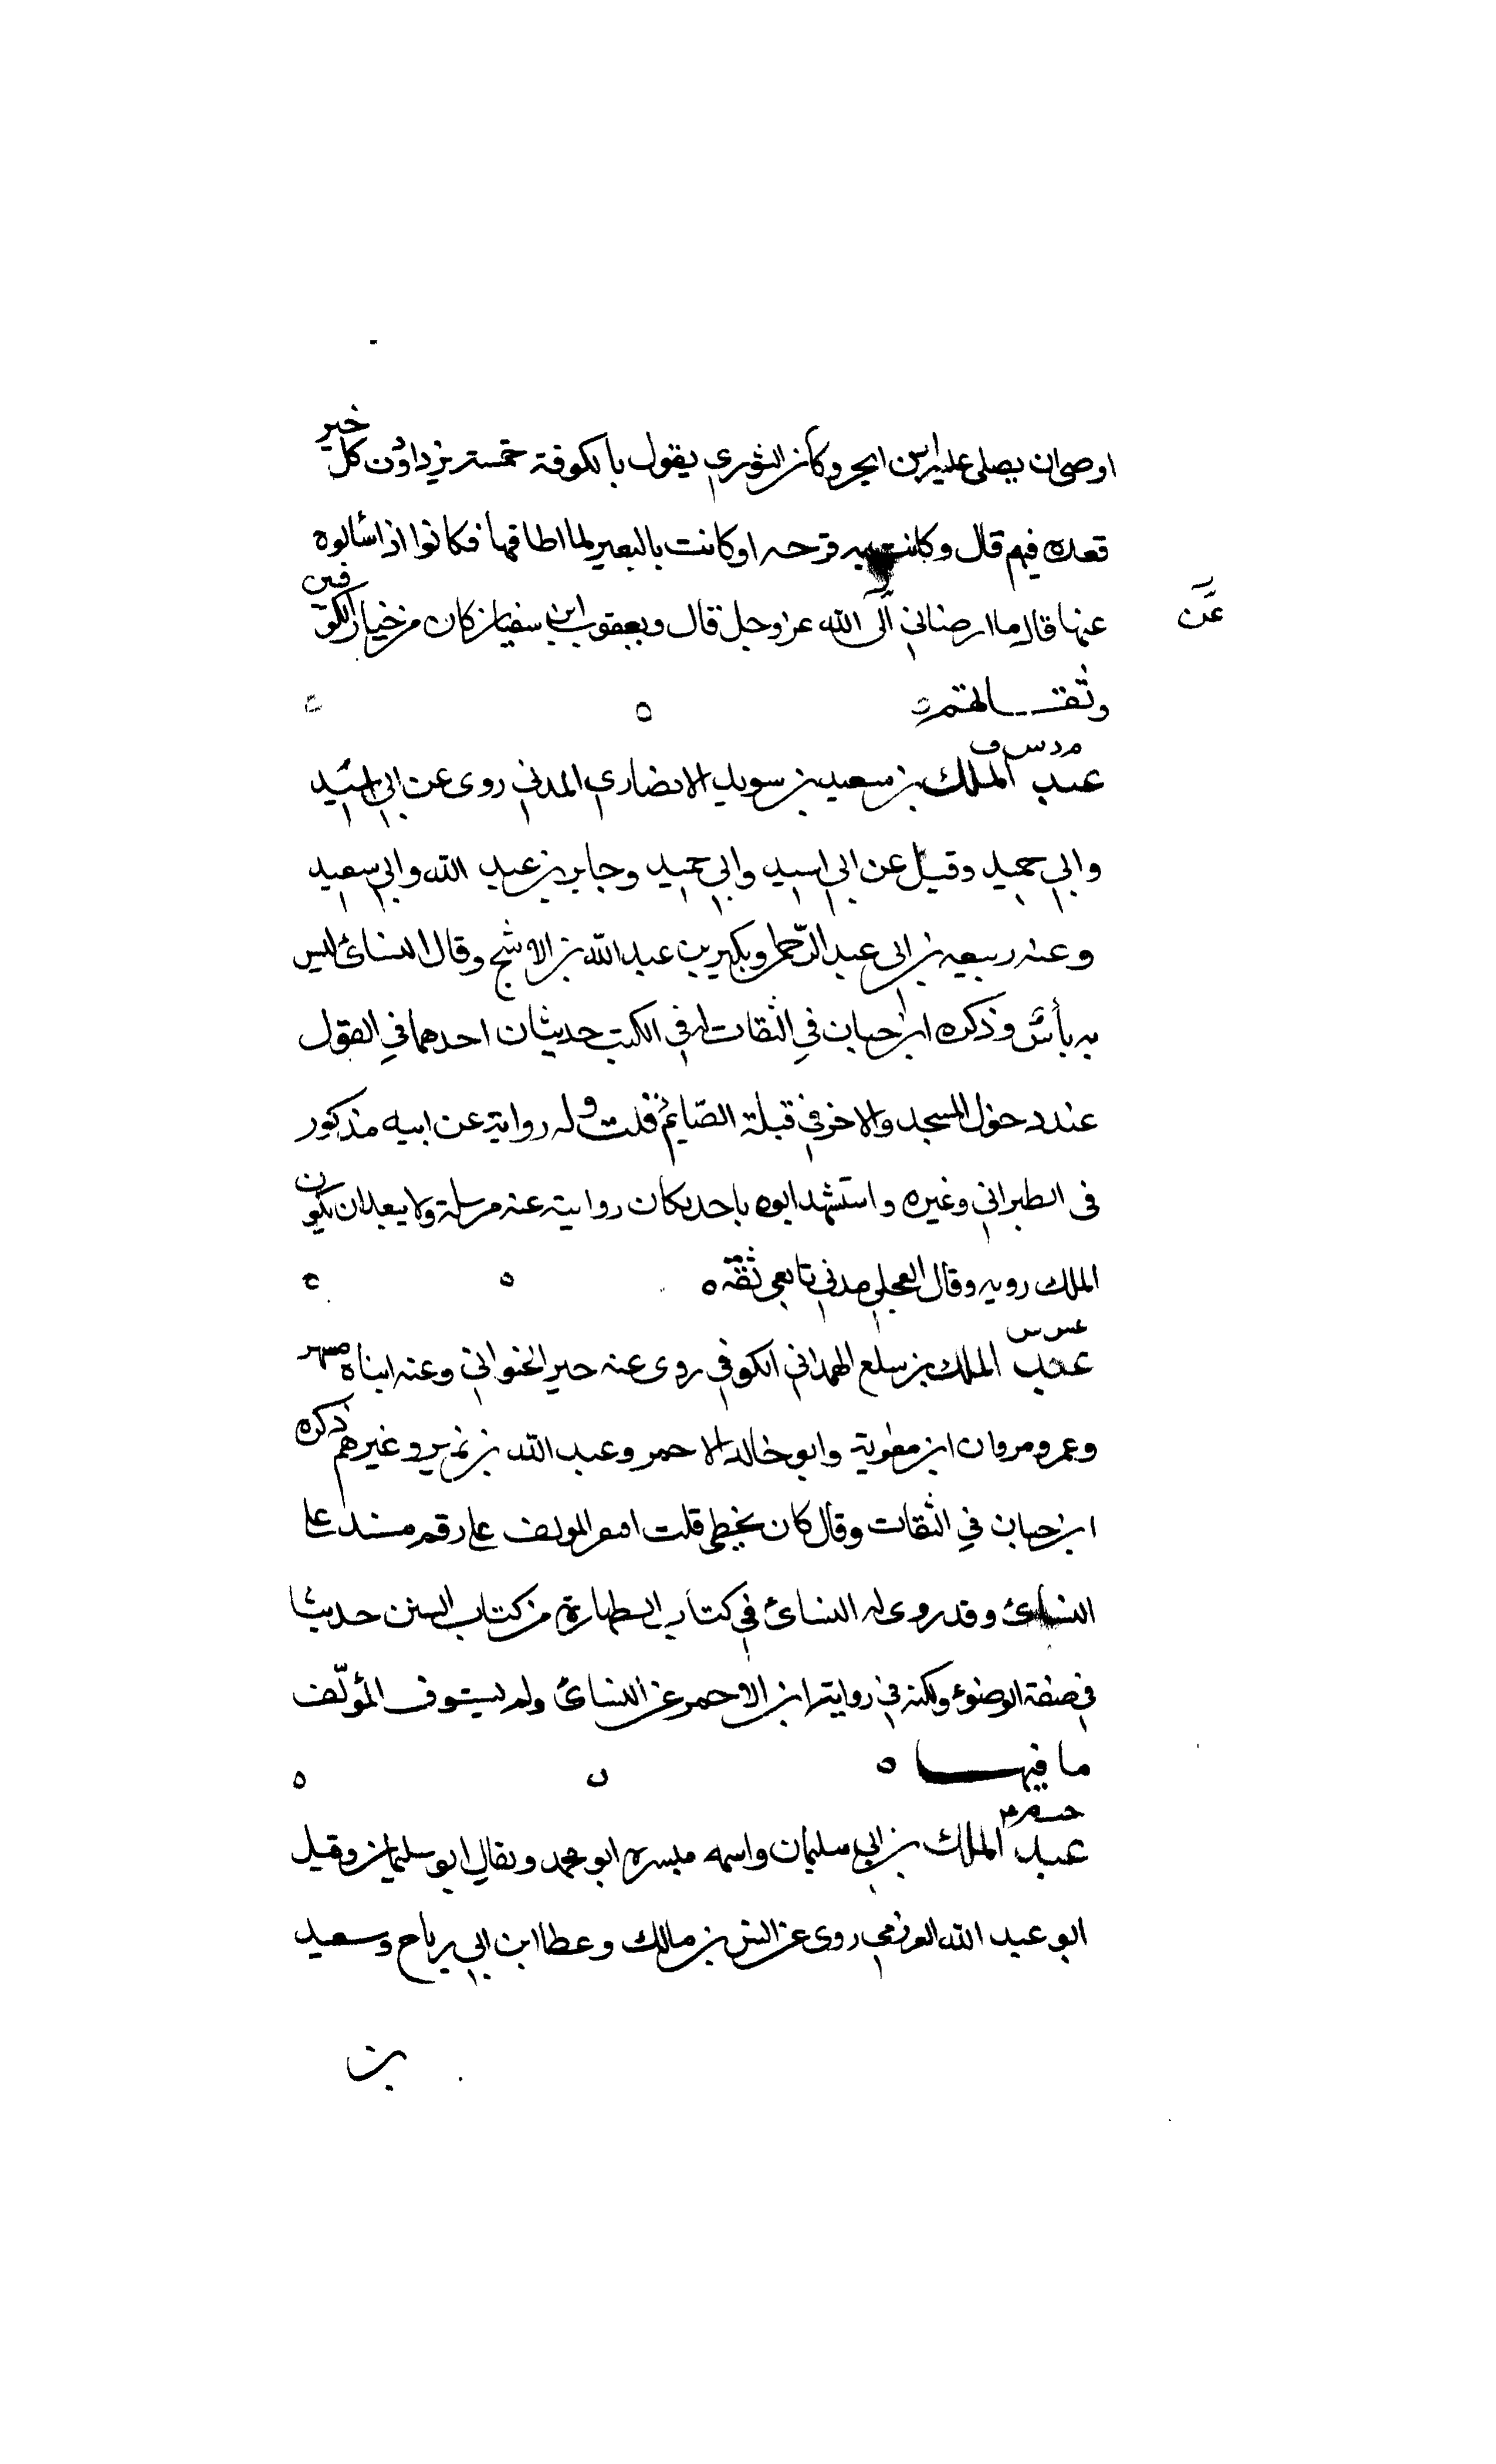 اوصى ان يصلي عليه ابن ابجر وكان الثوري يقول بالكوفة خمسة يزدادون كل خير
فعده فيهم قال وكانت به قرحه لو كانت بالبعير لما اطاقها فكانوا اذا سالوه
عن
عنها قال ما ارضاني الى الله عز وجل قال ويعقوب ابن سفيان كان من خيار الكوفيين
وثقاتهم
م د س ق
عبد الملك بن سعيد بن سويد الانصاري المدني روى عن ابي اسيد
وابي حميد وقيل عن ابي اسيد وابي حميد وجابر بن عبد الله وابي سعيد
وعنه ربيعه بن ابي عبد الرحمن وبكير بن عبد الله بن الاشج وقال النسائي ليس
به بأس وذكره ابن حبان في الثقات له في الكتب حديثان احدهما في القول
عند دخول المسجد والاخر في قبلة الصايم قلت وله رواية عن ابيه مذكور
في الطبراني وغيره واستشهد ابوه باحد فكان روايته عنه مرسلة ولا يبعد ان يكون
الملك رويه وقال العجلي مدني تابعي ثقة
عس س
عبد الملك بن سلع الهمداني الكوفي روى عنه خير الخيواني وعنه ابناه مسهر
وعمر ومروان ابن معوية وابو خالد الاحمر وعبد الله بن نمير وغيرهم ذكره
ابن حبان في الثقات وقال كان يخطي قلت المولف على رقم مسند علي
النسائي وقد روى له النسائي في كتاب الطهارة من كتاب السنن حديثا
في صفة الوضوء ولكنه في رواية ابن الاحمر عن النسائي ولم يستوف المؤلّف
ما فيها
عبد الملك بن ابي سليمان واسمه ميسره ابو محمد ويقال ابو سليمان وقيل
ابو عبد الله العرزمي روى عن انس بن مالك وعطا ابن ابي رباح وسعيد
بن